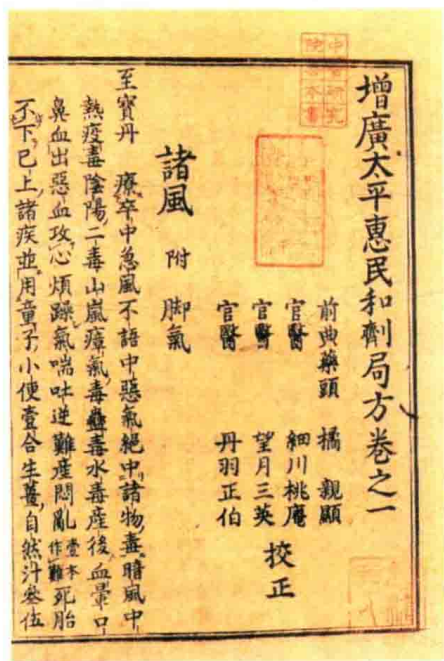 增廣太平惠民和劑局方卷之一
前典藥頭 橘 親顯
官醫 細川桃庵
官醫 望月三英
官醫 丹羽正伯
校正
諸風 附 脚氣
至寶丹 療卒中急風不語中惡氣絕中諸物毒暗風中
熱疫毒陰陽二毒山嵐瘴氣毒蠱毒水毒產後血暈口
鼻血出惡血攻心煩躁氣喘吐逆難產悶亂壹本作難死胎
不下已上諸疾並用童子小便壹合生薑自然汁叄伍
中醫研究
院 本書